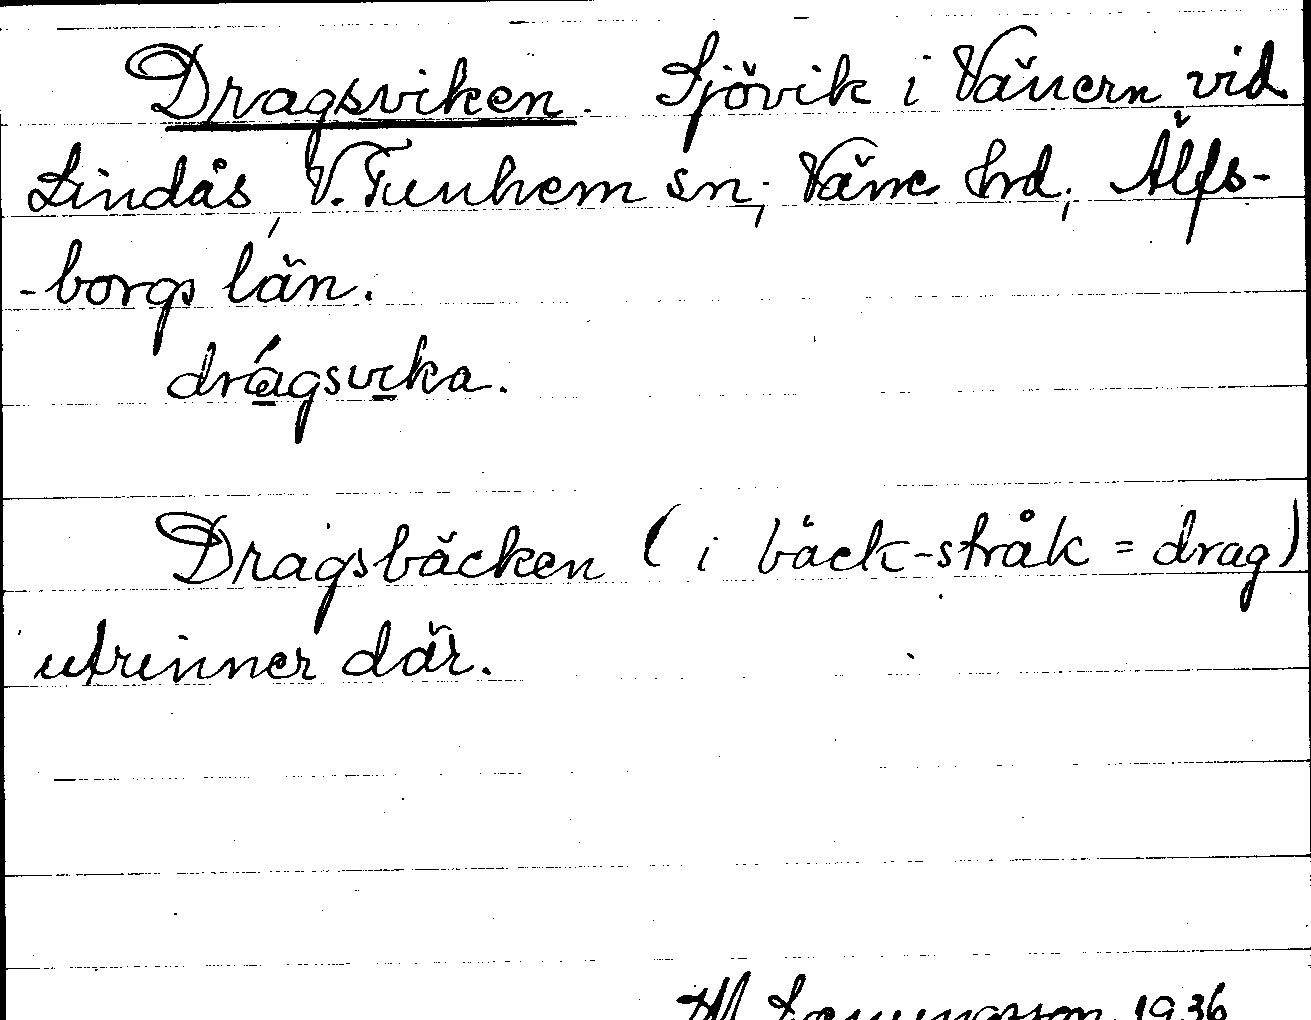 Dragsviken. Sjövik i Vänern vid
Lindås, V. Tunhem sn; Väne hrd; Älfs-
-borgs län.
drágsvika.
Dragsbäcken (i bäck-stråk = drag)
utrinner där.
1936